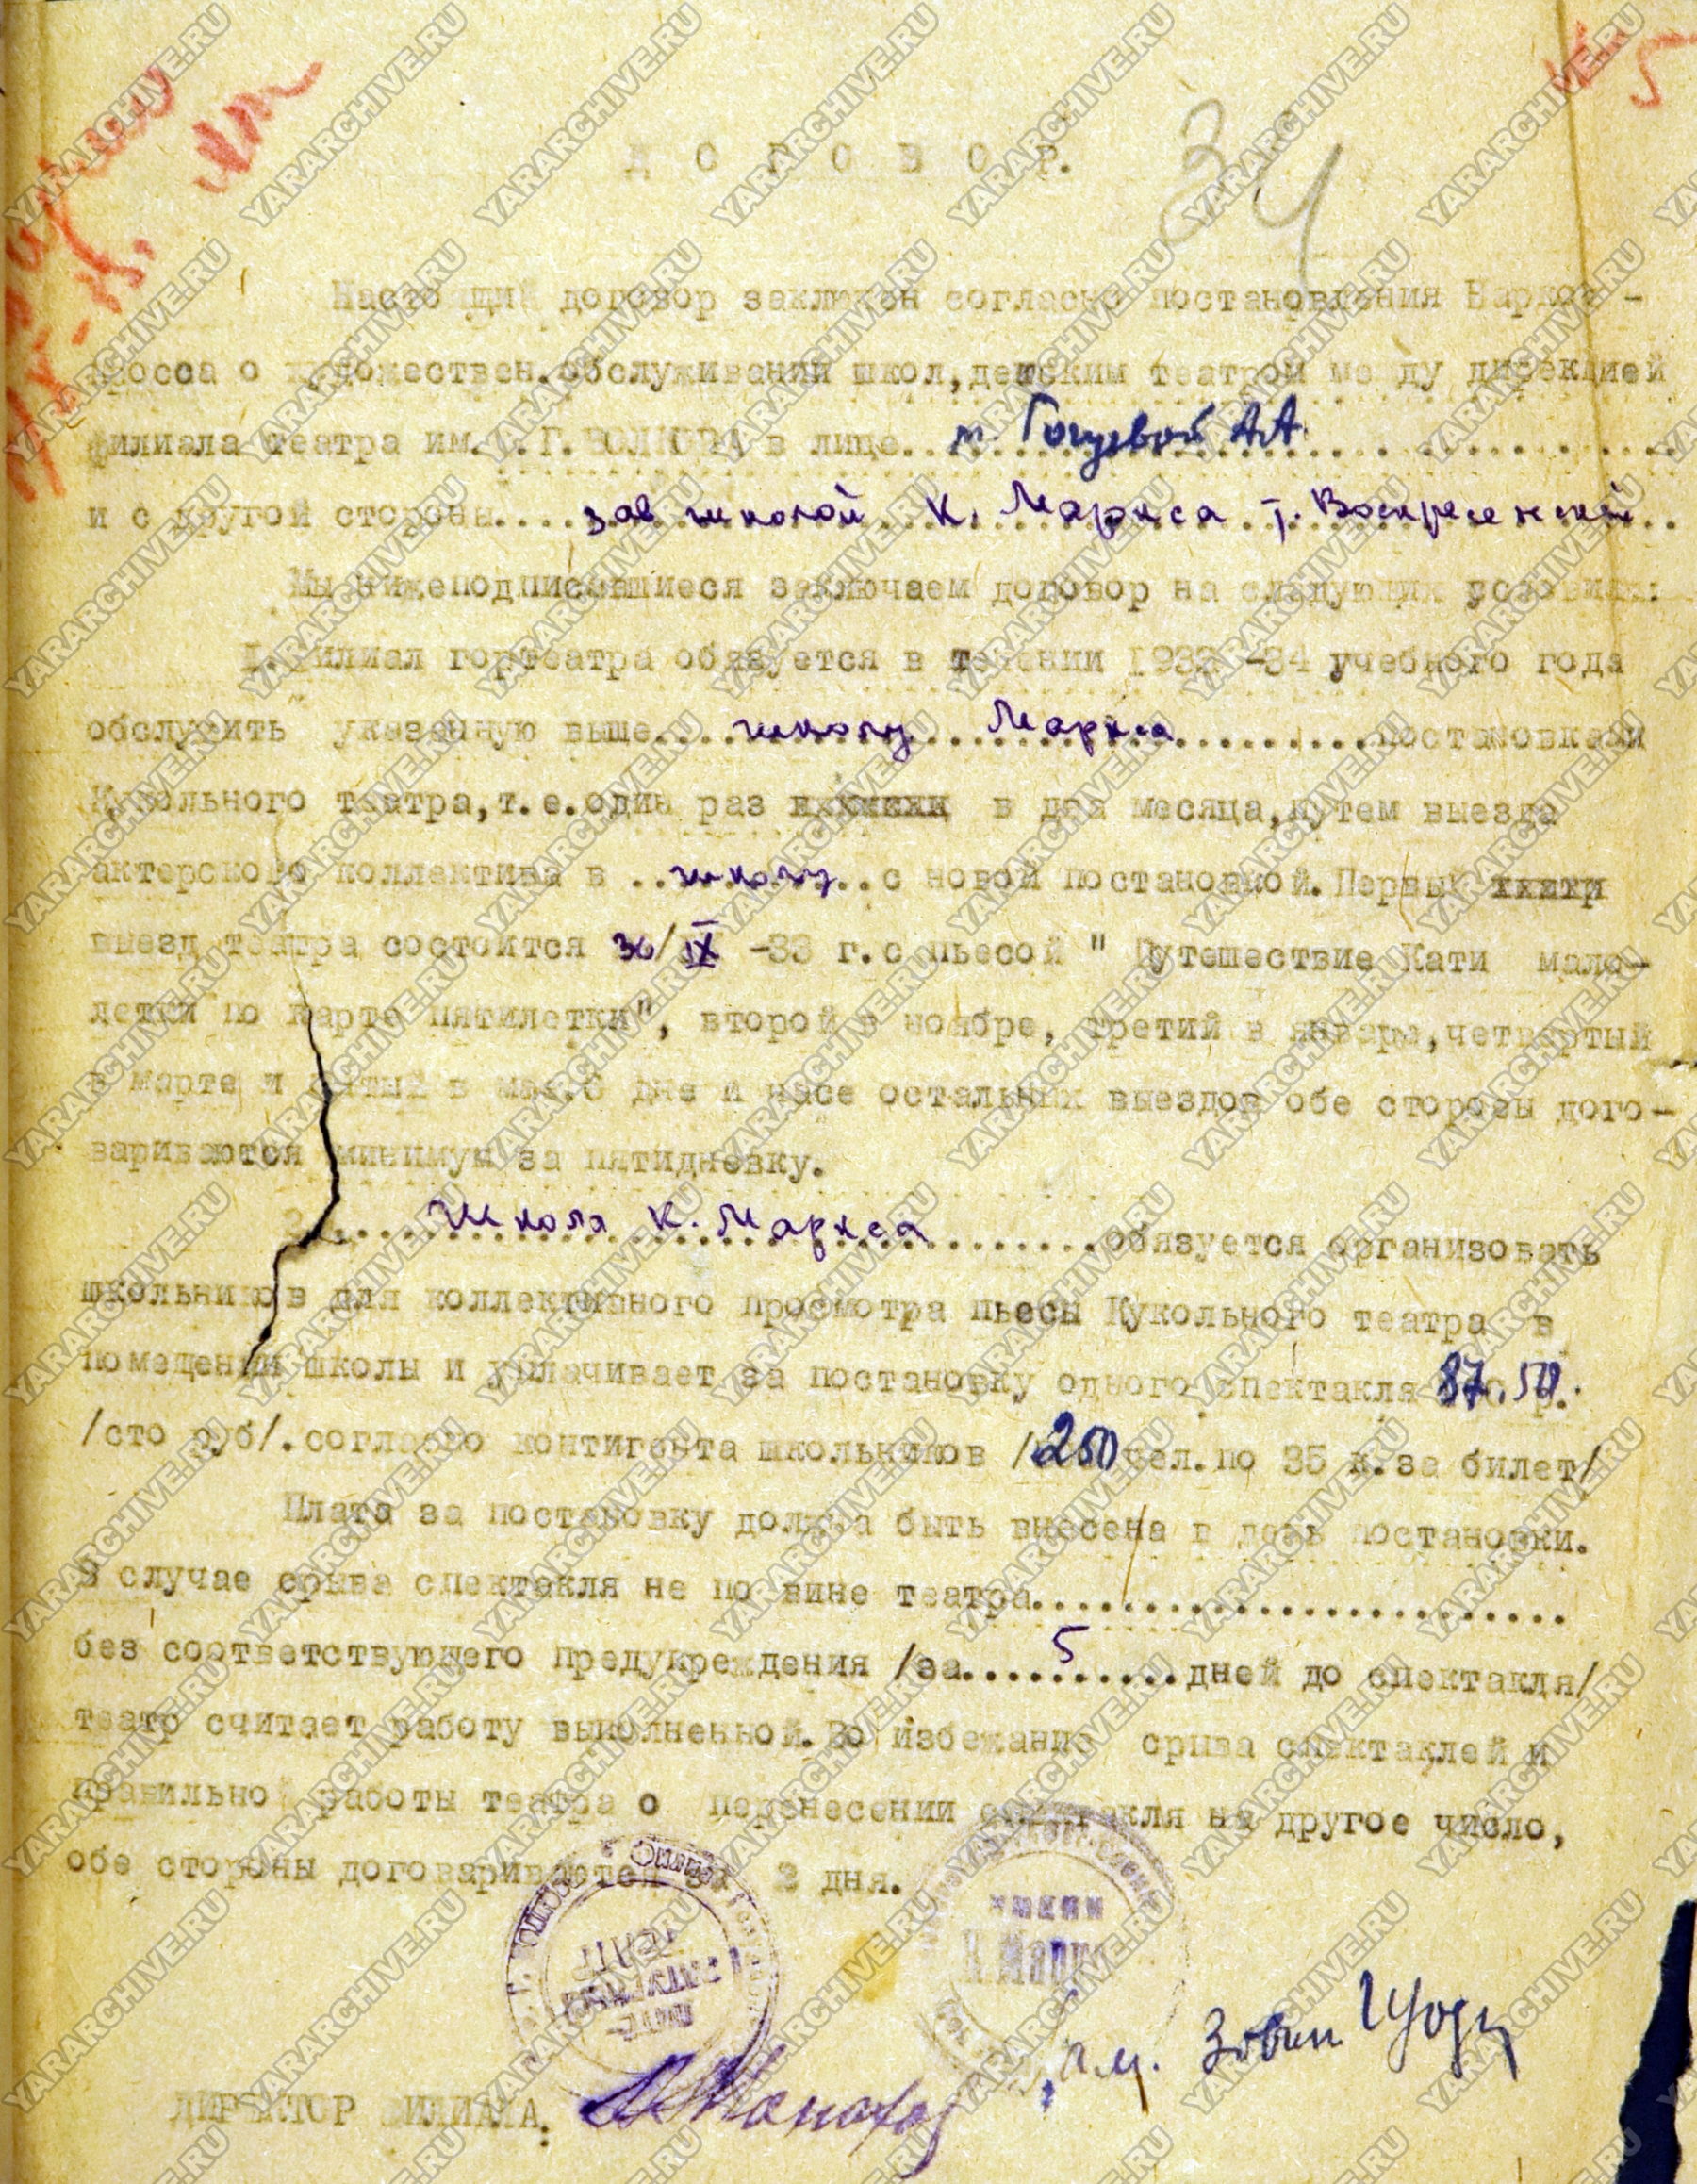 34
5
Д О Г О В О Р.
Настоящий договор заключен согласно постановления Нарком -
проса о художествен.обслуживании школ,детским театром между дирекцией
филиала театра им. Г. ВОЛКОВА в лице т. А.А.
и с другой стороны зав школой К. Маркса т. Воскресенской
Мы нижеподписавшиеся заключаем договор на следующих условиях:
I. Филиал гортеатра обязуется в течении 1933 -34 учебного года
обслужить указанную выше школу Маркса постановками
Кукольного театра,т.е.один раз в два месяца,путем выезда
актерского коллектива в школу с новой постановкой.Первый
выезд театра состоится 30/IX -33 г.с пьесой " Путешествие Кати мало-
летки по карте пятилетки", второй в ноябре, третий в январе,четвертый
в марте и пятый в мае.О дне и часе остальных выездов обе стороны дого-
вариваются минимум за пятидневку.
2. Школа К. Маркса обязуется организовать
школьников для коллективного просмотра пьесы Кукольного театра в
помещении школы и уплачивает за постановку одного спектакля 87.50. р.
/сто руб/.согласно контигента школьников /250 чел.по 35 к.за билет/
Плата за постановку должна быть внесена в день постановки.
В случае срыва спектакля не по вине театра
без соответствующего предупреждения /за 5 дней до спектакля/
театр считает работу выполненной.Во избежание срыва спектаклей и
правильной работы театра о перенесении спектакля на другое число,
обе стороны договариваются за 2 дня.
школа
К Маркса
ДИРЕКТОР ФИЛИАЛА:
YARARCHIVE.RU